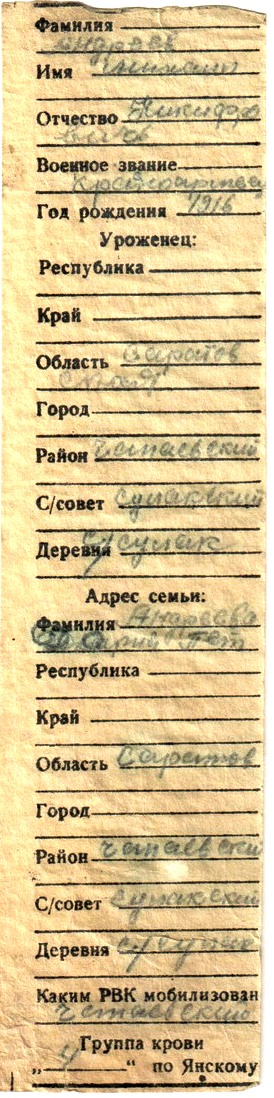 Фамилия
Андреев
Имя Михаил
Отчество Никифоро
вичь
Военное звание
Красноармеец
Год рождения 1916
Уроженец:
Республика
Край
Область Саратов
ская
Город
Район Чапаевский
С/совет Сулакский
Деревня с/ сулак
Адрес семьи:
Фамилия Андреева
Пет
Республика
Край
Область Саратов
Город
Район Чапаевский
С/совет Сулакский
Деревня с/ сулак
Каким РВК мобилизован
Чапаевский
Группа крови
„ 4 “ по Янскому